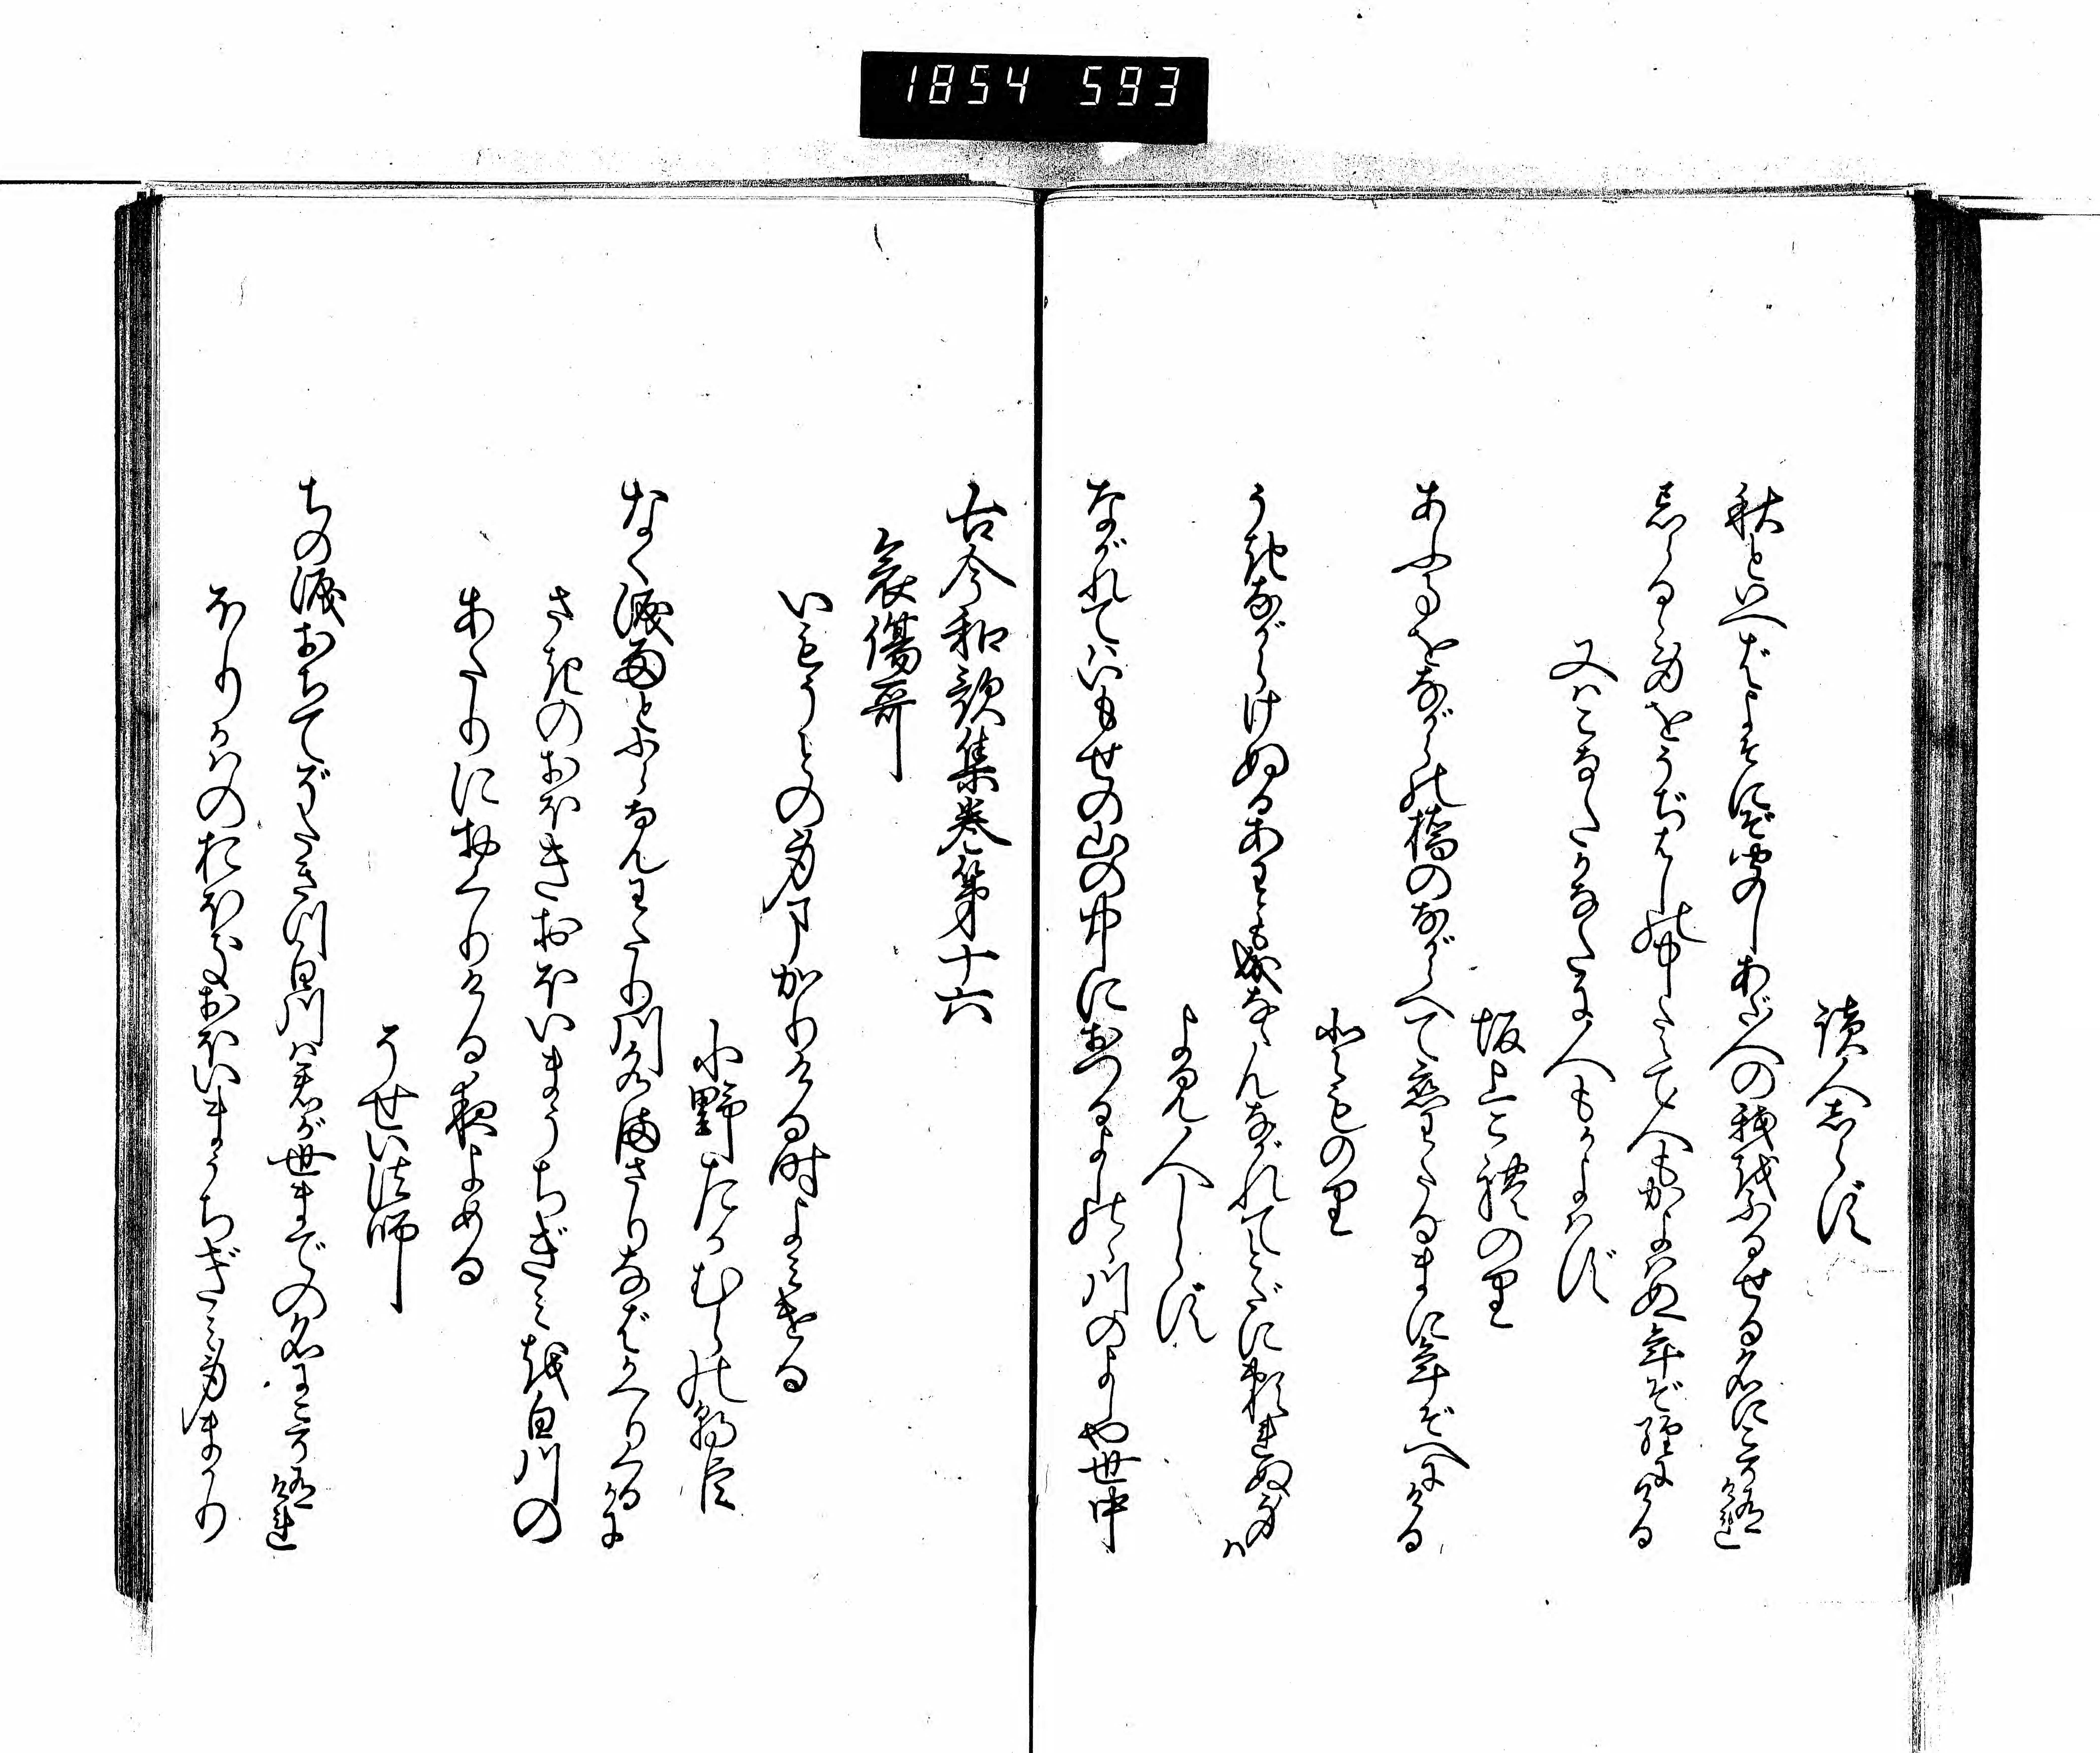 1854 593
読人しらず
秋といへばよそにぞ聞しあだ人の我をふるせる名にこそ有けれ
忘らるゝ身をうぢはしの中たえて人もかよはぬ年ぞ経にける
又はこなたかなたに人もかよはず
坂上これのり
あふ事をながらの橋のながらへて恋わたるまに年ぞへにける
とものり
うきながらけぬるあわとも成なゝんながれてとだに頼れぬ身は
よみ人しらず
ながれてはいもせの山の中におつるよしのゝ川のよしや世中
古今和歌集巻第十六
哀傷哥
いもうとの身まかりける時よみける
小野たかむらの朝臣
なく涙雨とふらなんわたり川水まさりなばかへりくるかに
さきのおほきおほいまうちぎみを白川の
あたりにおくりける夜よめる
そせい法師
ちの涙おちてぞたぎつ白川は君が世までの名にこそ有けれ
ほりかはのおほきおほいまうちぎみ身まかり